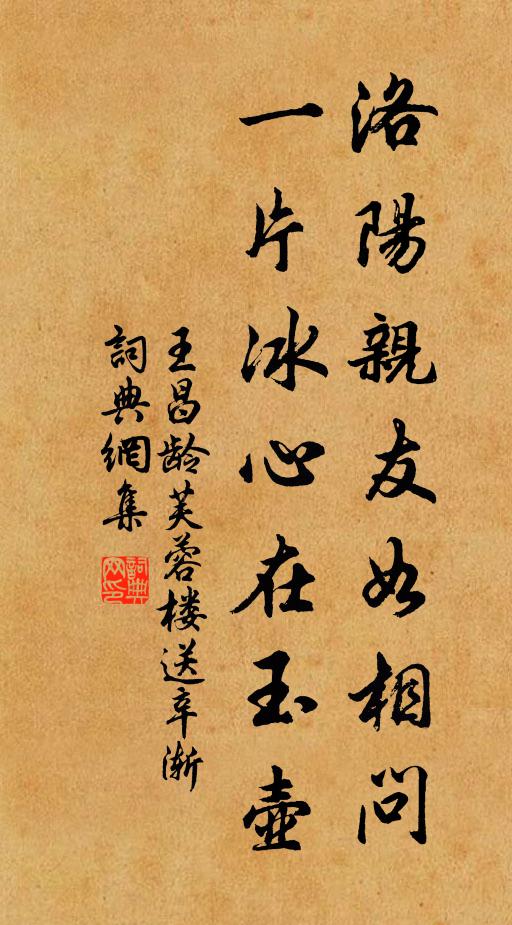 洛陽親友如相問
一片冰心在玉壺
王昌龄芙蓉楼送辛渐
詞典網集
詞典
网印